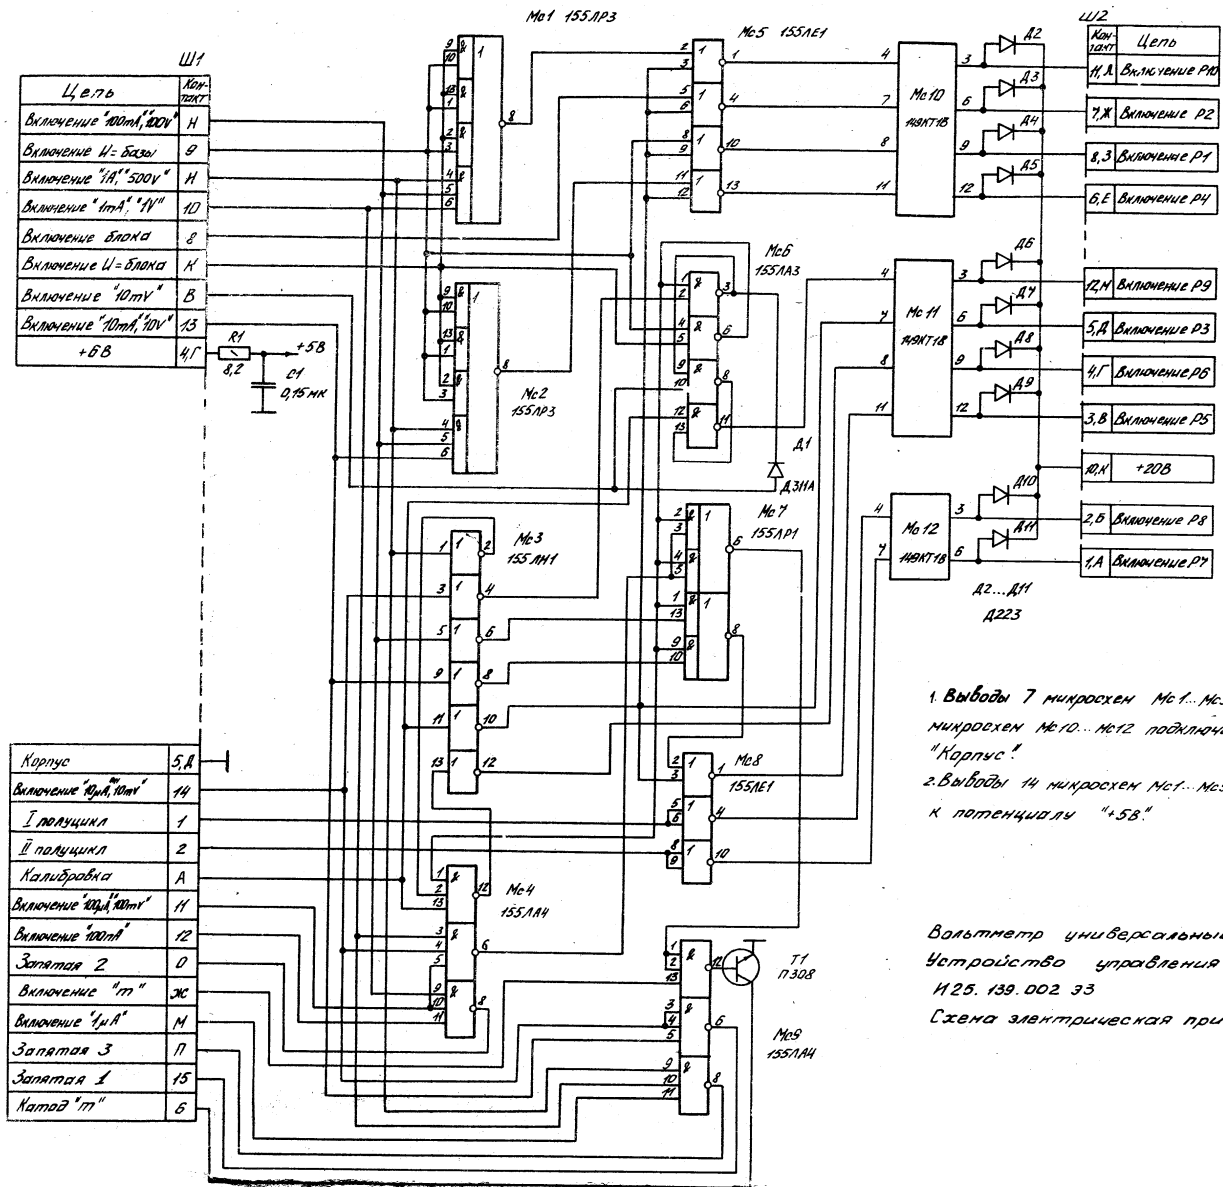 Ш1
Цепь Кон-такт
Включение "100mA","100V" Н
Включение U=базы 9
Включение "1A","500V" И
Включение "1mA","1V" 10
Включение блока 8
Включение U=блока К
Включение "10mV" В
Включение "10mA","10V" 13
+6В 4,Г
R1
8,2
+5В
C1
0,15 мк
Корпус 5,Д
Включение "10μA","10mV" 14
I полуцикл 1
II полуцикл 2
Калибровка А
Включение "100μA","100mV" 11
Включение "100nA" 12
Запятая 2 0
Включение "m" Ж
Включение "1μA" М
Запятая 3 П
Запятая 1 15
Катод "m" 6
Мс1 155ЛР3
9
10
13
1
2
3
4
5
6
&
&
&
&
1
8
Мс2
155ЛР3
9
10
13
1
2
3
4
5
6
&
&
&
&
1
8
Мс3
155ЛН1
1 1 2
3 1 4
5 1 6
9 1 8
11 1 10
13 1 12
Мс4
155ЛА4
1
2
13
& 12
3
4
5
& 6
9
10
11
& 8
Мс5 155ЛЕ1
2
3
1 1
5
6
1 4
8
9
1 10
11
12
1 13
Мс6
155ЛА3
1
2
& 3
4
5
& 6
9
10
& 8
12
13
& 11
Д1
Д311А
Мс7
155ЛР1
2
3
4
5
&
&
1
6
1
13
9
10
&
&
1
8
Мс8
155ЛЕ1
2
3
1
5
6
1 4
8
9
1 10
Мс9
155ЛА4
1
2
13
& 12
3
4
5
& 6
9
10
11
& 8
Т1
П308
Мс10
149КТ1В
4 3
7 6
8 9
11 12
Мс11
149КТ1В
4 3
7 6
8 9
11 12
Мс12
149КТ1В
4 3
7 6
Д2
Д3
Д4
Д5
Д6
Д7
Д8
Д9
Д10
Д11
Д2...Д11
Д223
Ш2
Кон-такт Цепь
11,Л Включение Р10
7,Ж Включение Р2
8,З Включение Р1
6,Е Включение Р4
12,М Включение Р9
5,Д Включение Р3
4,Г Включение Р6
3,В Включение Р5
10,К +20В
2,Б Включение Р8
1,А Включение Р7
1. Выводы 7 микросхем Мс1...Мс
микросхем Мс10...Мс12 подключ
"Корпус".
2. Выводы 14 микросхем Мс1...Мс
к потенциалу "+5В".
Вольтметр универсальный
Устройство управления
И25.139.002 Э3
Схема электрическая при